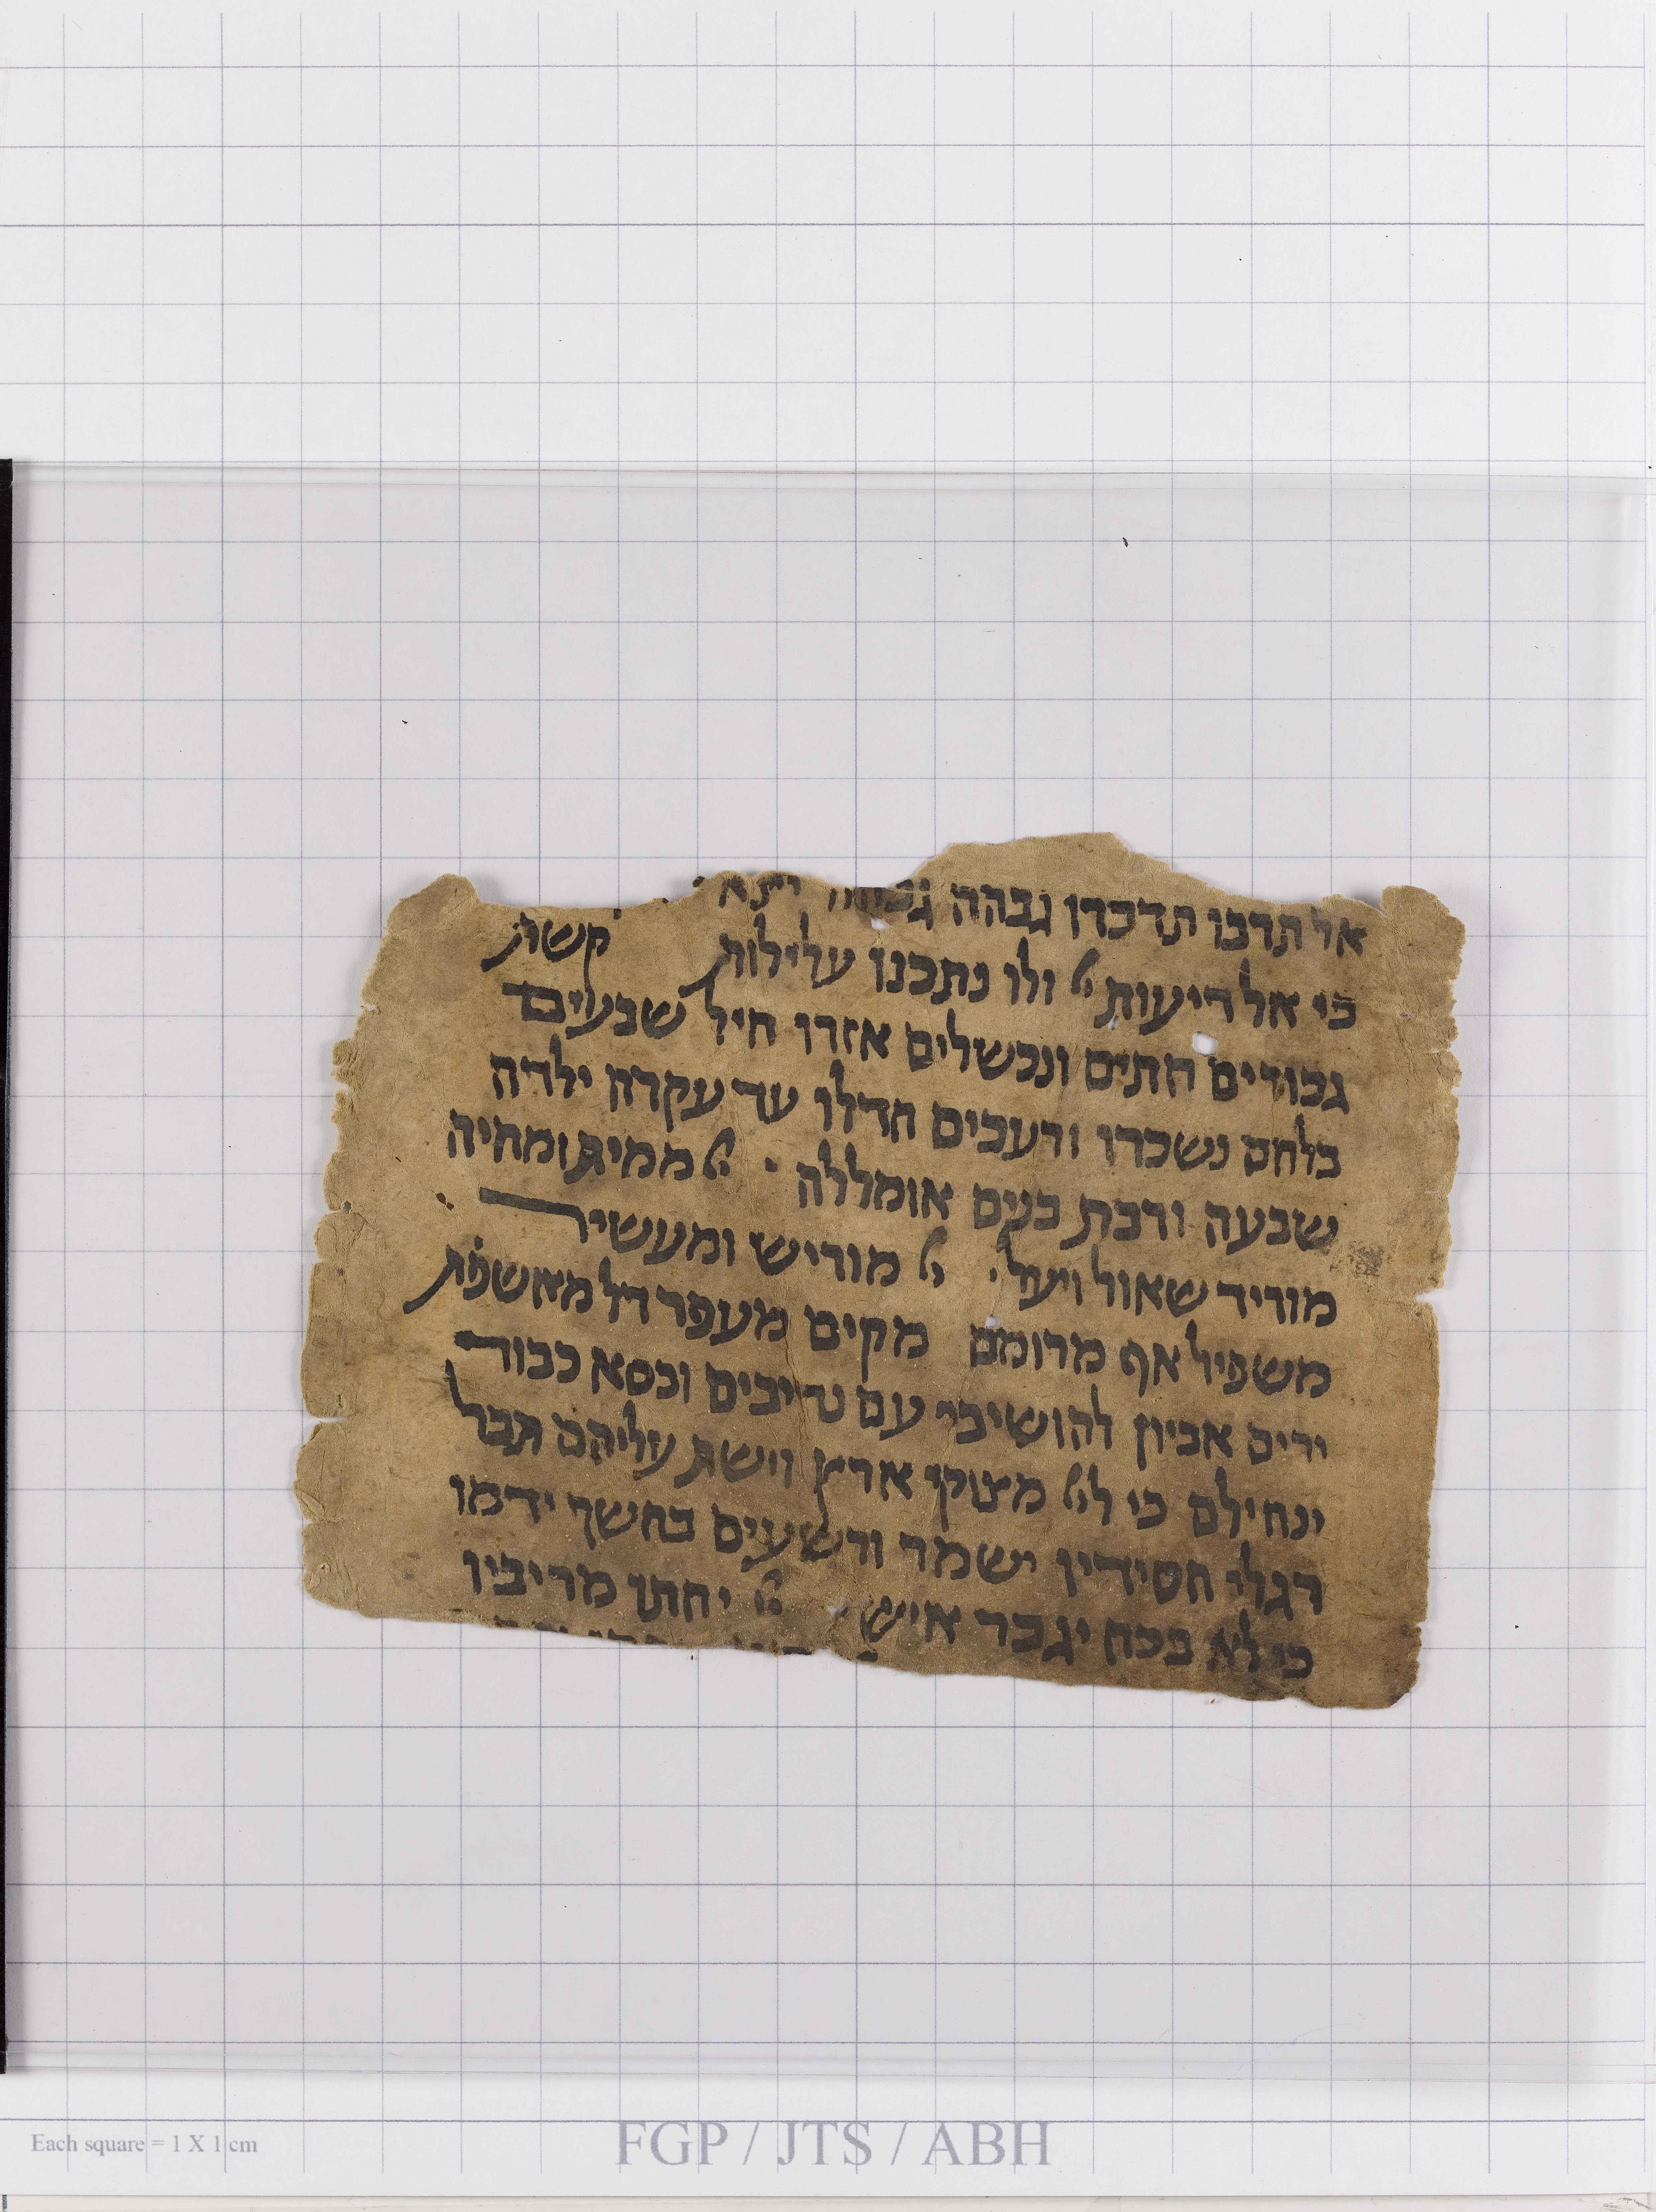 אל תרבו תדברו גבהה גבהה יצא
כי אל דיעות יי ולו נתכנו עלילות קשת
גבורים חתים ונכשלים אזרו חיל שבעים
בלחם נשכרו ורעבים חדלו עד עקרה ילדה
שבעה ורבת בנים אומללה יי ממית ומחיה
מוריד שאול ויעל יי מוריש ומעשיר
משפיל אף מרומם מקים מעפר דל מאשפת
ירים אביון להושיבי עם נדיבים וכסא כבוד
ינחילם כי ליי מצוקי ארץ וישת עליהם תבל
רגלי חסידיו ישמר ורשעים בחשך ידמו
כי לא בכח יגבר איש יי יחתו מריביו
Each square = 1 X 1 cm
FGP / JTS / ABH